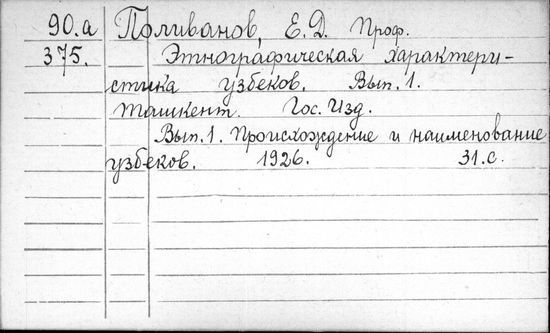 90.а Поливанов, Е.Д. Проф.
375. Этнографическая характери-
стика узбеков. Вып. 1.
Ташкент. Гос. Изд.
Вып. 1. Происхождение и наименование
узбеков. 1926. 31.с.